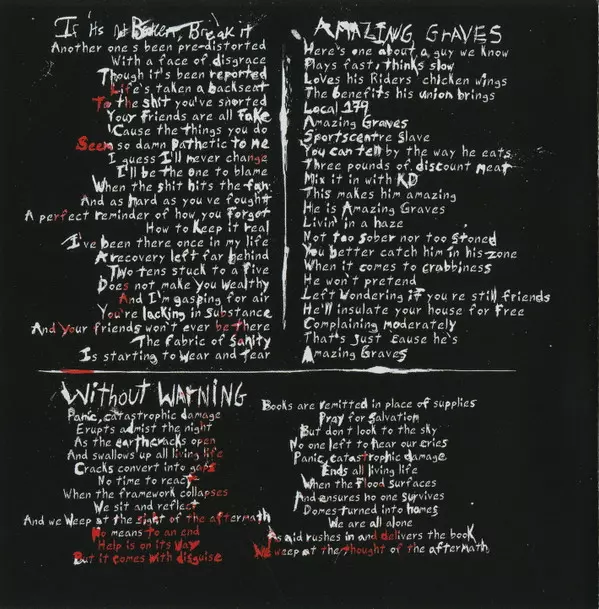 If It's Not Broken, Break it
Another one's been pre-distorted
With a face of disgrace
Though it's been reported
Life's taken a backseat
To the shit you've snorted
Your friends are all fake
'Cause the things you do
Seem so damn pathetic to me
I guess I'll never change
I'll be the one to blame
When the shit hits the fan
And as hard as you've fought
A perfect reminder of how you forgot
How to keep it real
I've been there once in my life
A recovery left far behind
Two tens stuck to a five
Does not make you wealthy
And I'm gasping for air
You're lacking in substance
And your friends won't ever be there
The fabric of sanity
Is starting to wear and tear
AMAZING GRAVES
Here's one about a guy we know
Plays fast, thinks slow
Loves his Riders' chicken wings
The benefits his union brings
Local 179
Amazing Graves
Sportscentre slave
You can tell by the way he eats
Three pounds of discount meat
Mix it in with KD
This makes him amazing
He is Amazing Graves
Livin' in a haze
Not too sober nor too stoned
You better catch him in his zone
When it comes to crabbiness
He won't pretend
Left wondering if you're still friends
He'll insulate your house for free
Complaining moderately
That's just cause he's
Amazing Graves
WITHOUT WARNING
Panic, catastrophic damage
Erupts admist the night
As the earth cracks open
And swallows up all living life
Cracks convert into gaps
No time to react
When the framework collapses
We sit and reflect
And we weep at the sight of the aftermath
No means to an end
Help is on its way
But it comes with disguise
Books are remitted in place of supplies
Pray for salvation
But don't look to the sky
No one left to hear our cries
Panic, catastrophic damage
Ends all living life
When the flood surfaces
And ensures no one survives
Domes turned into homes
We are all alone
As aid rushes in and delivers the book
We weep at the thought of the aftermath